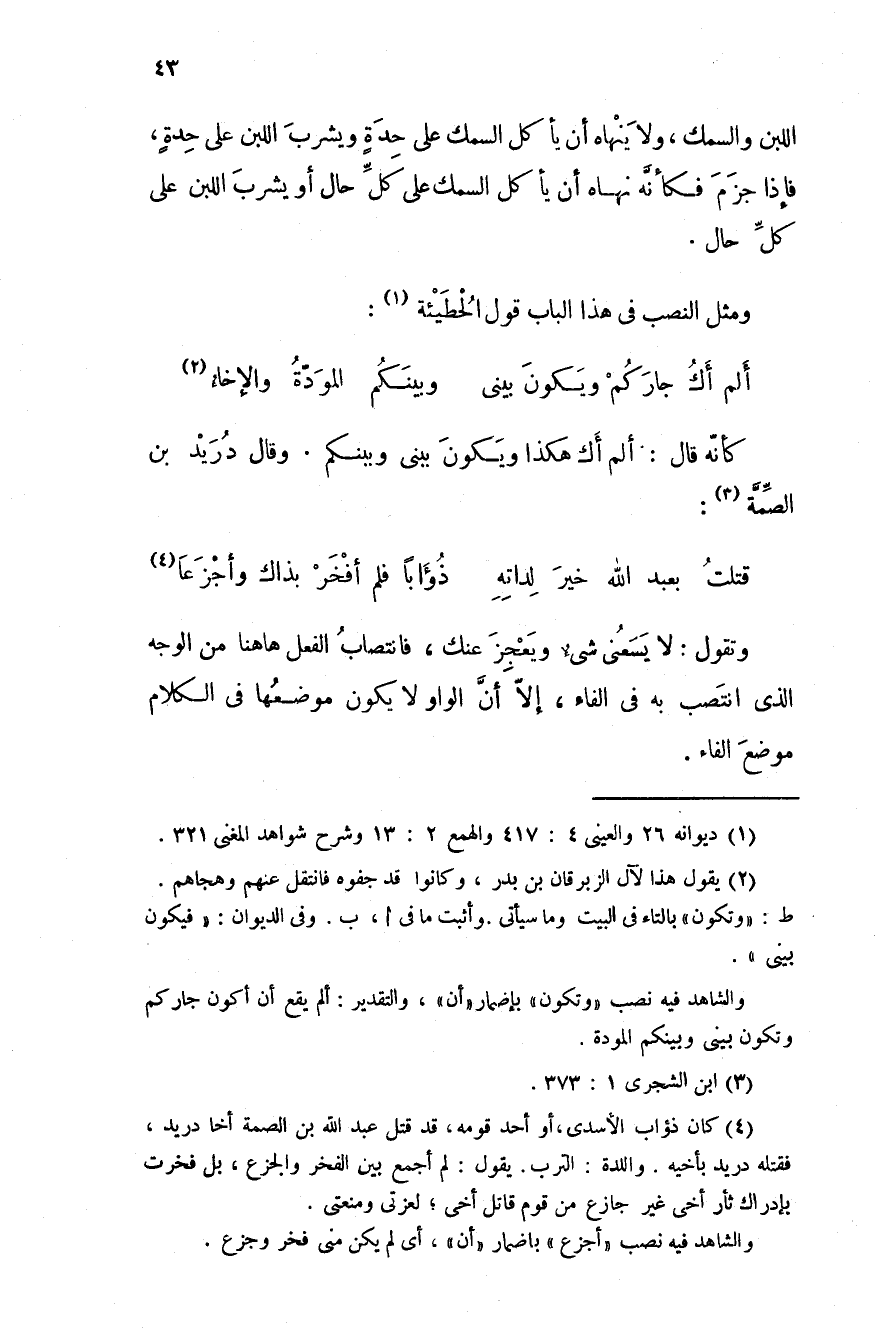 ٤٣
اللبن والسمك ، ولا يَنْهاه أن يأكل السمك على حِدَةٍ ويشربَ اللبن على حِدةٍ ،
فإِذا جزَمَ فكأنَّه نهاه أن يأكل السمك على كلِّ حال أو يشربَ اللبن على
كلِّ حال .
ومثل النصب فى هذا الباب قول الْحُطَيْئة (١) :
أَلم أَكُ جارَكُمْ ويَكونَ بينى وبينَكُم المودّةُ والإخاء (٢)
كأنّه قال : ألم أَك هكذا ويَكونَ بينى وبينكم . وقال دُرَيْد بن
الصِّمَّة (٣) :
قتلتُ بعبد الله خيرَ لِداتِهِ ذُؤَاباً فلم أفْخَرْ بذاك وأجْزَعَا (٤)
وتقول : لا يَسَعُنى شىءٌ ويَعْجِزَ عنك ، فانتصابُ الفعل هاهنا من الوجه
الذى انتَصب به فى الفاء ، إلاّ أنَّ الواو لا يكون موضعُها فى الكلام
موضعَ الفاء .
(١) ديوانه ٢٦ والعينى ٤ : ٤١٧ والهمع ٢ : ١٣ وشرح شواهد المغنى ٣٢١ .
(٢) يقول هذا لآل الزبرقان بن بدر ، وكانوا قد جفوه فانتقل عنهم وهجاهم .
ط : «وتكون» بالتاء فى البيت وما سيأتى . وأثبت ما فى ا ، ب . وفى الديوان : « فيكون
بينى » .
والشاهد فيه نصب «وتكون» بإضمار «أن» ، والتقدير : ألم يقع أن أكون جاركم
وتكون بينى وبينكم المودة .
(٣) ابن الشجرى ١ : ٣٧٣ .
(٤) كان ذؤاب الأسدى ، أو أحد قومه ، قد قتل عبد الله بن الصمة أخا دريد ،
فقتله دريد بأخيه . واللدة : الترب . يقول : لم أجمع بين الفخر والجزع ، بل فخرت
بإدراك ثأر أخى غير جازع من قوم قاتل أخى ؛ لعزتى ومنعتى .
والشاهد فيه نصب «أجزع» باضمار «أن» ، أى لم يكن منى فخر وجزع .